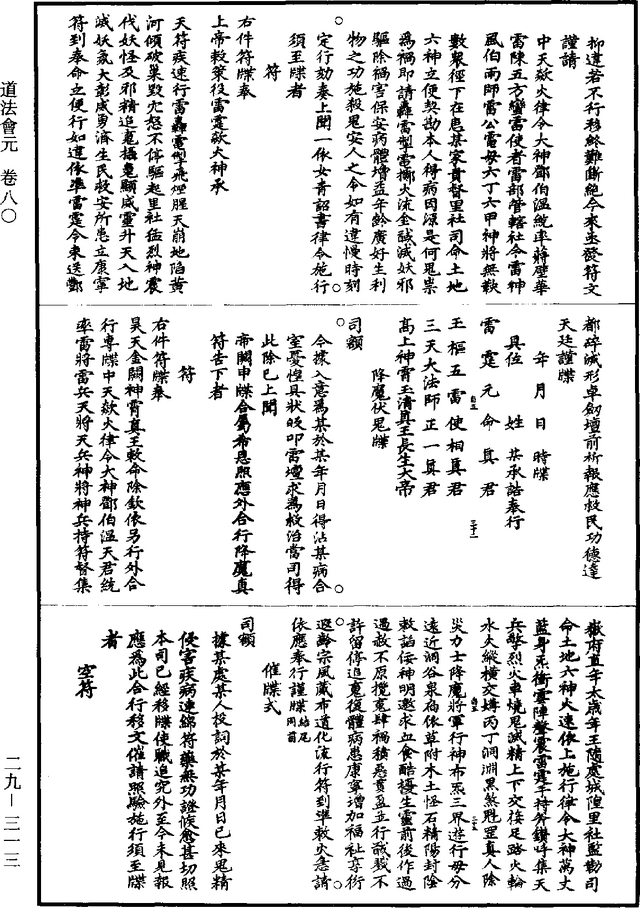 道法會元　卷八〇
二九—三一三
抑違若不行移終難斷絕今來丞發符文
謹請
中天欻火律令大神鄧伯溫統率將壁華
雷陳五方蠻雷使者雷部管轄社令雷神
風伯雨師雷公電母六丁六甲神將無鞅
數衆徑下在患某家責督里社司命土地
六神立便契勘本人得病因源是何鬼祟
爲禍即請轟雷掣電擲火流金誠滅妖邪
驅除禍害保安病體增益年齡廣好生利
物之功施殺鬼安人之令如有違慢時刻
定行劾奏上聞一依女青詔書律令施行
須至牒者
符
右件符牒奉
上帝敕策役雷霆欻火神承
天符疾速行雷轟電掣飛煙腥天崩地陷黃
河傾破巢毀穴怒不停驅起里社猛烈神震
代妖怪及邪精追鬼攝鬼顯威靈升天入地
滅妖氛大彰威勇濟生民救安所患立康寧
符到奉命立便行如違依準雷霆令來送酆
都碎滅形卓劒壇前祈報應救民功德達
天廷謹牒
年　月　日　時牒
具位　姓　某承誥奉行
雷霆元命真君
玉樞五雷使相真君
三天大法師正一真君
高上神霄玉清真王長生大帝
降魔伏鬼牒
司額
今據入意爲某於某年月日得沾某病合
室憂惶具狀哀叩雷壇求爲救治當司得
此除已上聞
帝闕申牒合屬希恩照應外合行降魔真
符告下者
符
右件符牒奉
昊天金闕神霄真王敕命除欽依另行外合
行專牒中天欻火律令大神鄧伯溫天君統
率雷將雷兵天將天兵神將神兵持符督集
嶽府直年太歲年王隨處城隍里社監勒司
命土地六神火速依上施行律令大神萬丈
藍身炁衝雷陣聲震雷霆手持斧鑽呼集天
兵擎烈火車燒鬼滅精上下交接足踏火輪
水火縱橫交搏丙丁洞淵黑煞魁罡真人除
災力士降魔將軍行神布炁三界遊行毋分
遠近洞谷泉宿依草附木土怪石精陽封陰
敕諂佞神明邀求血食酷擾生靈前後作過
過赦不原攬鬼肆禍積惡貫盈立行誡截不
許留停追鬼復體病患康寧增加福祉享衍
遐齡宗風葳布道化流行符到準敕火急請
依應奉行謹牒結尾同前
催牒式
司額
據某處某人投詞於某年月日已來鬼精
侵害疾病連綿符藥無功證候愈甚切照
本司已經移牒使職追究外至今未見報
應爲此合行移文催請照驗施行須至牒
者
空符